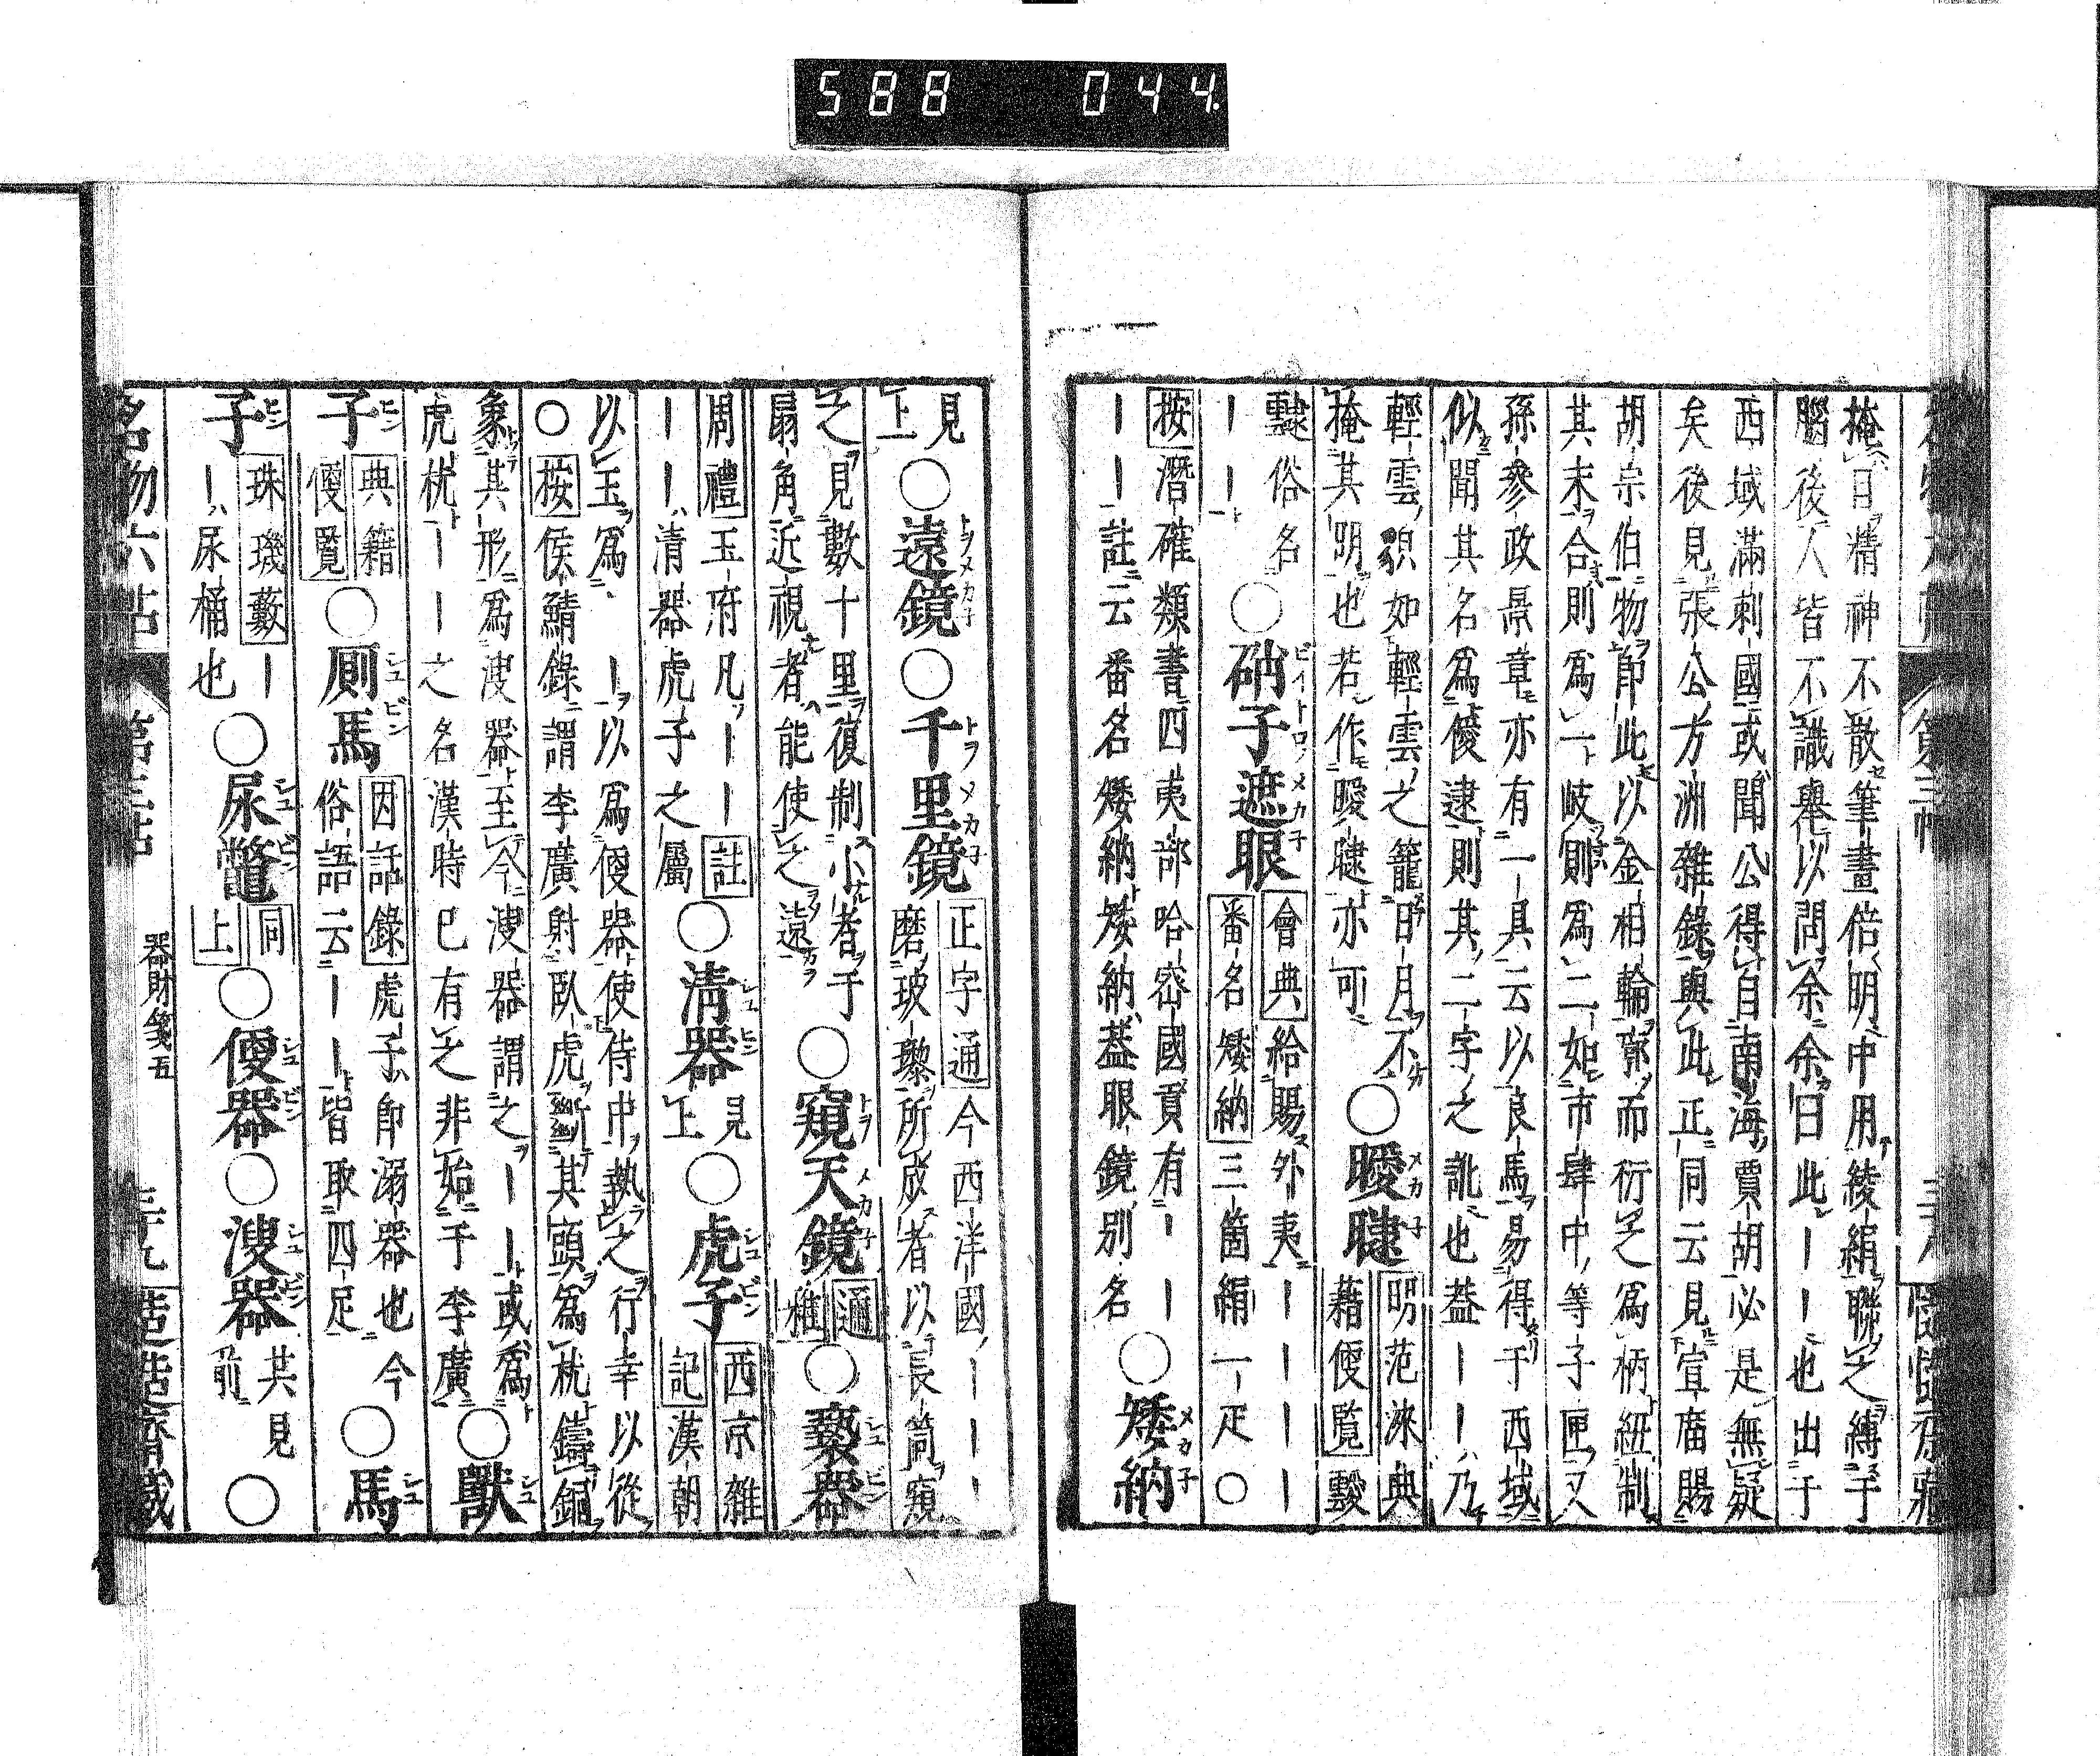 掩目精神不散筆畫倍明中用綾絹聯之縛于
腦後人皆不識舉以問余余曰此――也出于
西域滿剌國或聞公得自南海賈胡必是無疑
矣後見張公方洲雜錄與此正同云見宣廟賜
胡宗伯物即此以金相輪郭而衍之爲柄紐制
其末合則爲一岐則爲二如市肆中等子匣又
孫參政景章亦有一具云以良馬易得于西域
似聞其名爲僾逮則其二字之訛也蓋――乃
輕雲貌如輕雲之籠日月不
掩其明也若作曖曃亦可
○曖曃メカ子
明范淶典
籍便覧靉
靆俗名
――
○硝子遮眼ビイトロノメカ子
會典給賜外夷――――
番名矮納三箇絹一疋○
按潛確類書四夷部哈密國貢有――
――註云番名矮納矮納蓋眼鏡別名
○矮納メカ子
見
上
○遠鏡トヲメカ子○千里鏡トヲメカ子
正字通今西洋國―――
磨玻瓈所成者以長筒窺
之見數十里復制小者于
扇角近視者能使之遠
○窺天鏡トヲメカ子
邇
雅
○褻器シユビン
周禮玉府凡――註
――清器虎子之屬
○清器シユビン
見
上
○虎子シユビン
西京雜
記漢朝
以玉爲―――以爲便器使侍中執之行幸以從
○按侯鯖錄謂李廣射臥虎斷其頭爲枕鑄銅
象其形爲溲器至今溲器謂之――或爲
虎枕――之名漢時已有之非始于李廣
○獸シユ
子ビン
典籍
便覧
○厠馬シユビン
因話錄虎子即溺器也今
俗語云――皆取四足
○馬シユ
子ビン
珠璣藪―
―尿桶也
○尿鼈シユビン
同
上
○便器シユビン○溲器シユビン
共見
前
○
名物六帖
第三帖
器財箋五
三十九